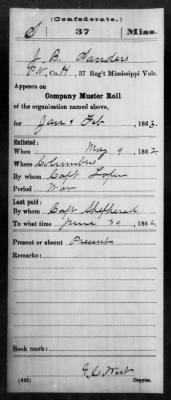 (Confederate.)
S 37 Miss.
J. B. Sanders
Pvt., Co. H, 37 Reg't Mississippi Vols.
Appears on
Company Muster Roll
of the organization named above,
for Jan & Feb, 1863.
Enlisted:
When May 9, 1862
Where Columbus
By whom Capt
Period War
Last paid:
By whom Capt Shepherd
To what time June 30, 1862
Present or absent Present
Remarks:
Book mark:
(642) Copyist.